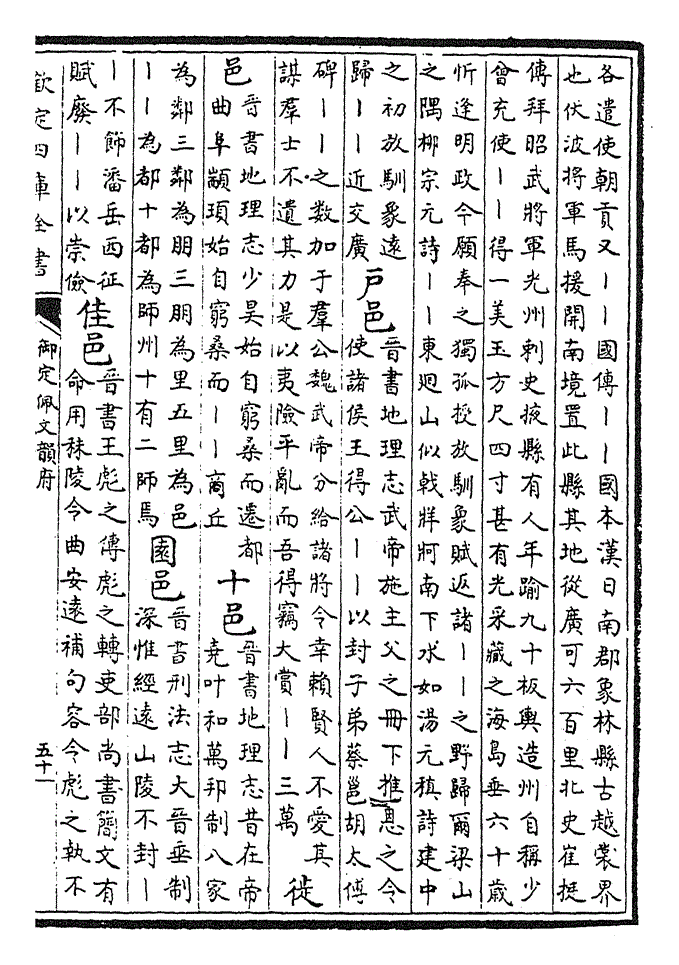 各遣使朝貢又丨丨國傳丨丨國本漢日南郡象林縣古越裳界
也伏波將軍馬援開南境置此縣其地從廣可六百里北史崔挺
傳拜昭武將軍光州刺史掖縣有人年踰九十板輿造州自稱少
曾充使丨丨得一美玉方尺四寸甚有光采藏之海島垂六十歲
忻逢明政今願奉之獨孤授放馴象賦返諸丨丨之野歸爾梁山
之隅柳宗元詩丨丨東廻山似戟牂牁南下水如湯元稹詩建中
之初放馴象遠
歸丨丨近交廣
戶邑
晉書地理志武帝施主父之冊下推恩之令
使諸侯王得公丨丨以封子弟蔡邕胡太傅
碑丨丨之數加于羣公魏武帝分給諸將令幸賴賢人不愛其
謀羣士不遺其力是以夷險平亂而吾得竊大賞丨丨三萬
徙
邑
晉書地理志少昊始自窮桑而遷都
曲阜顓頊始自窮桑而丨丨商丘
十邑
晉書地理志昔在帝
堯叶和萬邦制八家
為鄰三鄰為朋三朋為里五里為邑
丨丨為都十都為師州十有二師焉
園邑
晉書刑法志大晉垂制
深惟經遠山陵不封丨
丨不飾潘岳西征
賦廢丨丨以崇儉
佳邑
晉書王彪之傳彪之轉吏部尚書簡文有
命用秣陵令曲安遠補句容令彪之執不
欽定四庫全書
御定佩文韻府
五十一